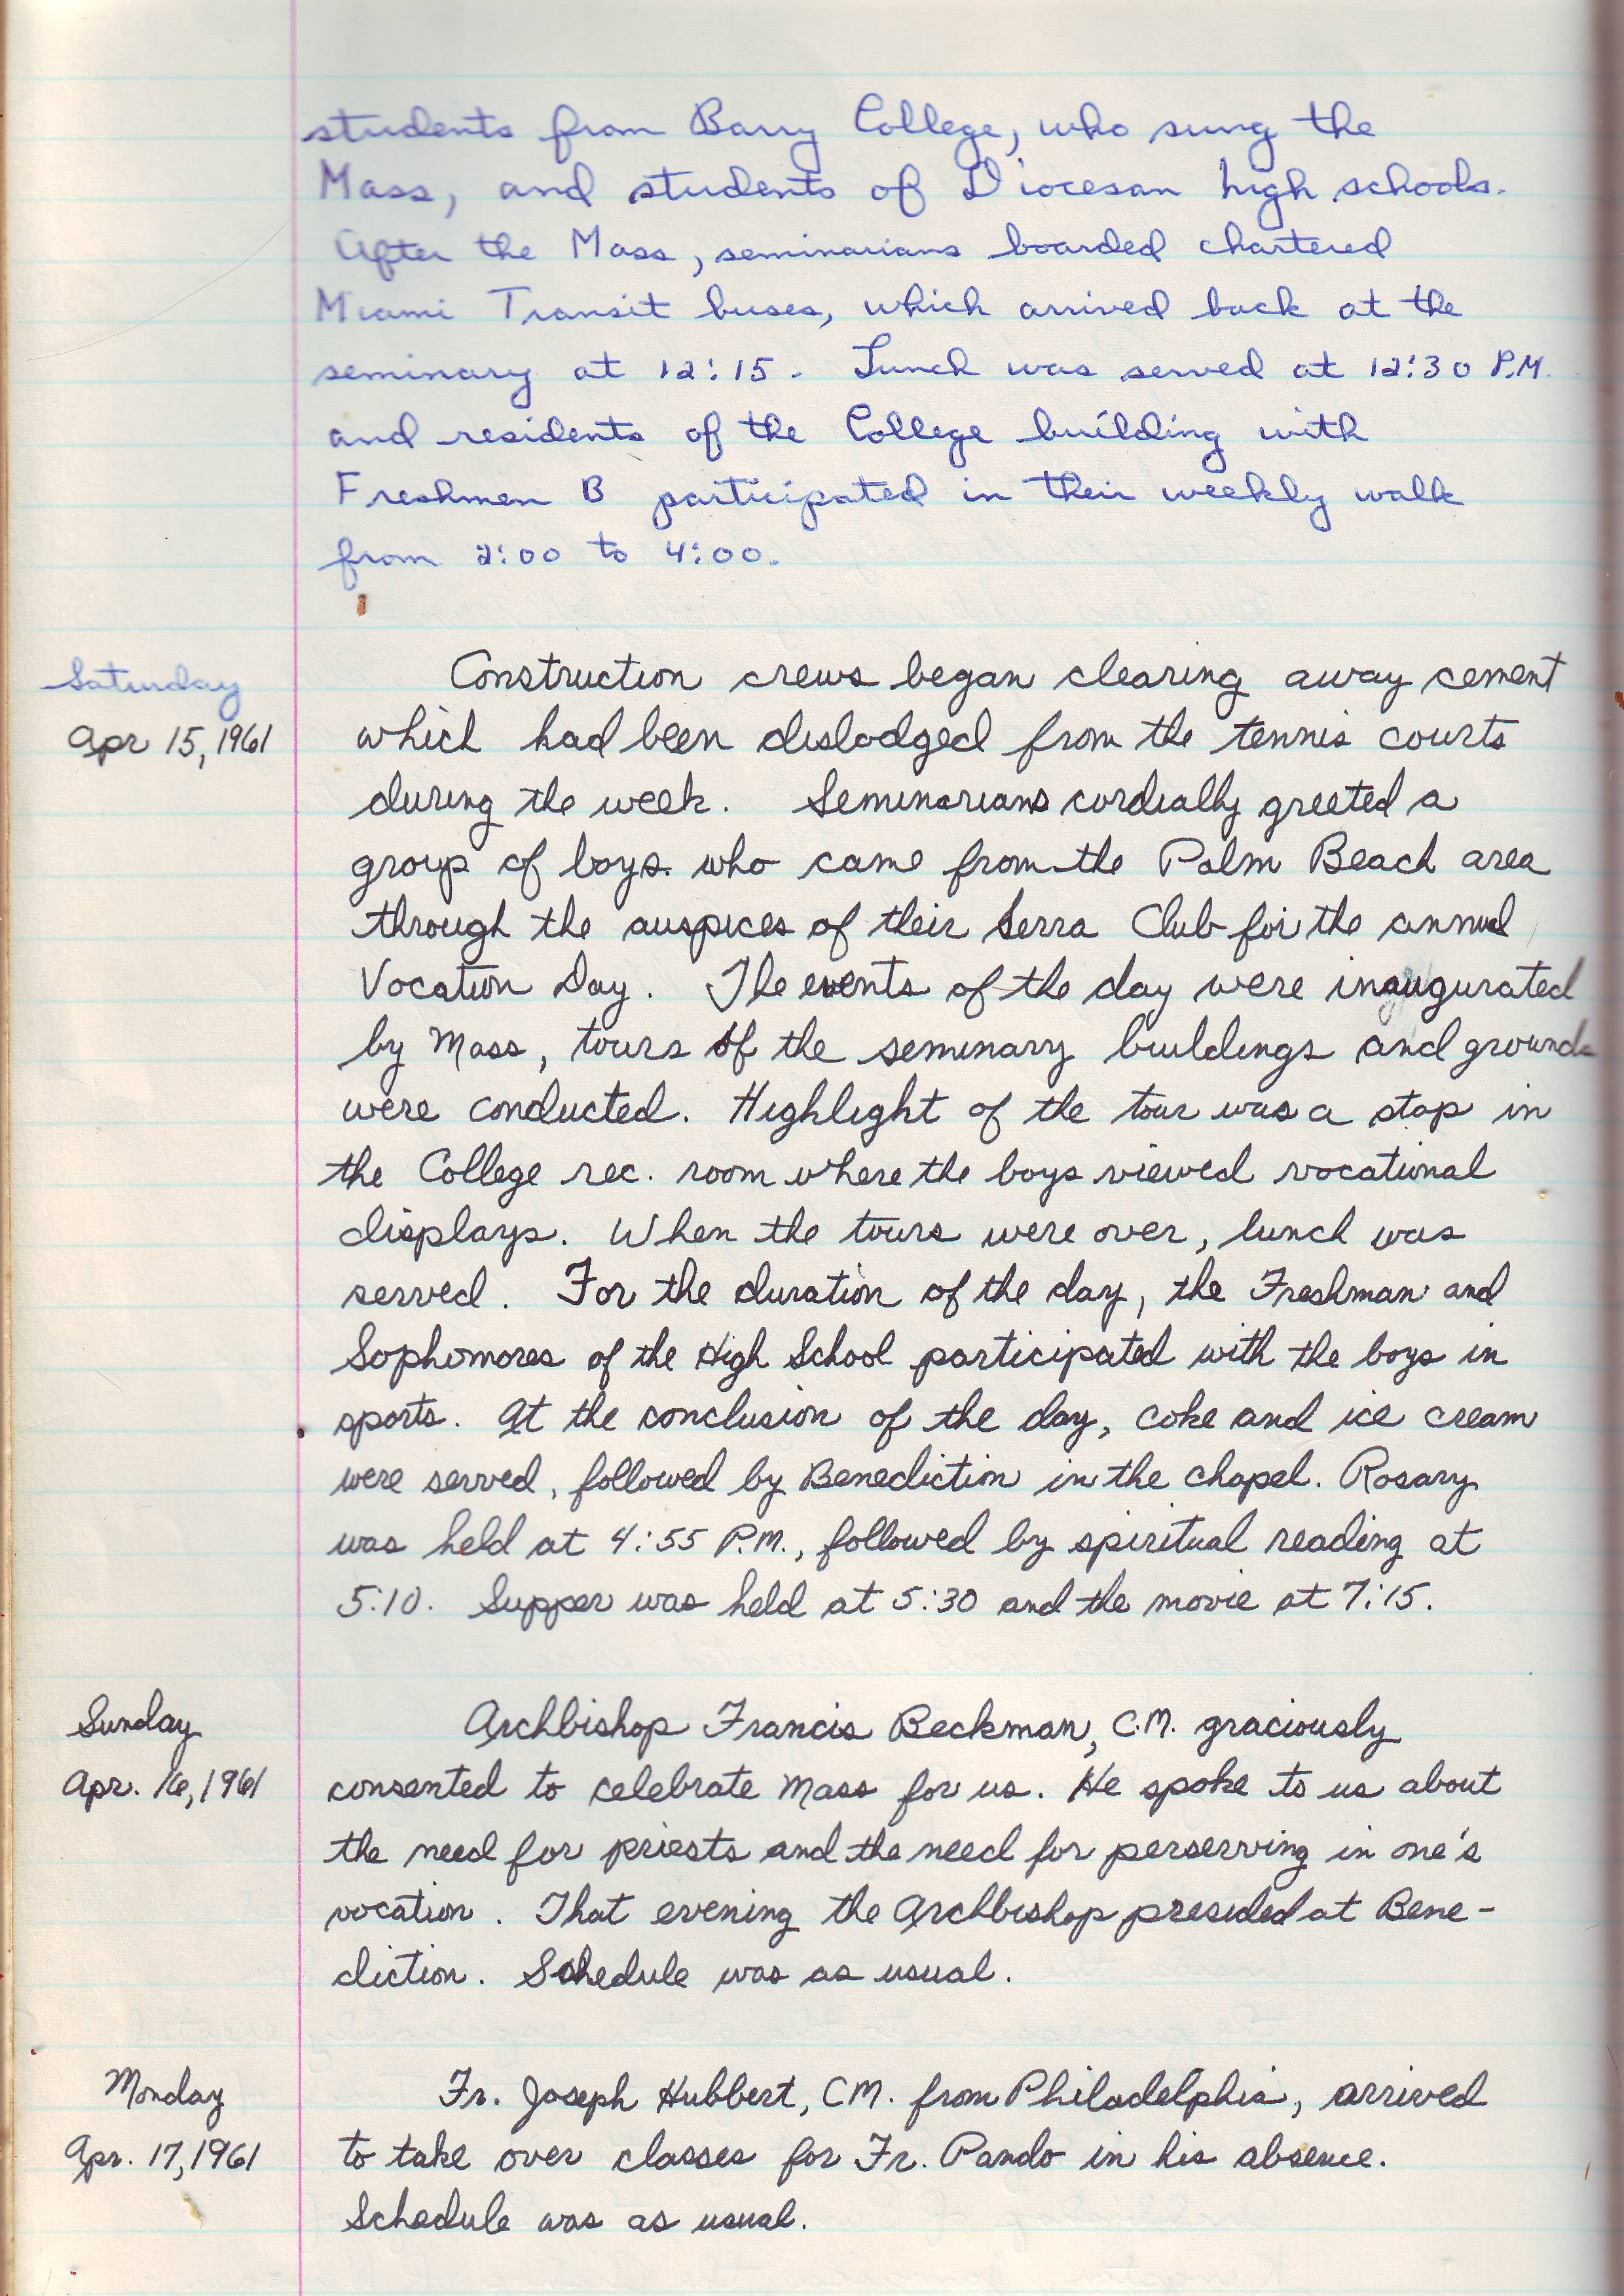 students from Barry College, who sung the
Mass, and students of Diocesan high schools.
After the Mass, seminarians boarded chartered
Miami Transit buses, which arrived back at the
seminary at 12:15. Lunch was served at 12:30 P.M.
and residents of the College building with
Freshmen B participated in their weekly walk
from 2:00 to 4:00.
Saturday
Apr 15, 1961
Construction crews began clearing away cement
which had been dislodged from the tennis courts
during the week. Seminarians cordially greeted a
group of boys who came from the Palm Beach area
through the auspices of their Serra Club for the annual
Vocation Day. The events of the day were inaugurated
by Mass, tours of the seminary buildings and grounds
were conducted. Highlight of the tour was a stop in
the College rec. room where the boys viewed vocational
displays. When the tours were over, lunch was
served. For the duration of the day, the Freshman and
Sophomores of the High School participated with the boys in
sports. At the conclusion of the day, coke and ice cream
were served, followed by Benediction in the chapel. Rosary
was held at 4:55 P.M., followed by spiritual reading at
5:10. Supper was held at 5:30 and the movie at 7:15.
Sunday
Apr. 16, 1961
Archbishop Francis Beckman, C.M. graciously
consented to celebrate Mass for us. He spoke to us about
the need for priests and the need for perserving in one's
vocation. That evening the Archbishop presided at Bene-
diction. Schedule was as usual.
Monday
Apr. 17, 1961
Fr. Joseph Hubbert, CM. from Philadelphia, arrived
to take over classes for Fr. Pando in his absence.
Schedule was as usual.